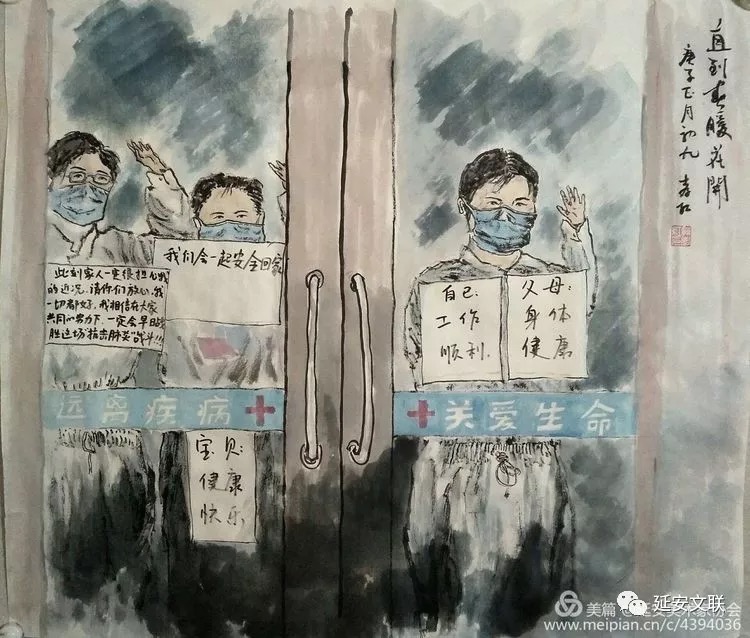 直到春暖花開
庚子正月初九
我们会一起安全回家
此刻家人一定很担心我
的近况.请你们放心.我
一切都好,我相信在大家
共同的努力下,一定会早日战
胜这场"抗击肺炎"战斗!!!
自己:
工作
顺利.
父母:
身体
健康
远离疾病
关爱生命
宝贝:
健康
快乐
延安文联
美篇
术家协会
www.meipian.cn/c/4394036